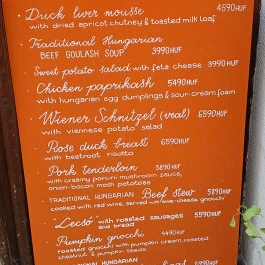 Duck liver mousse 4690 HUF
with dried apricot chutney & toasted milk loaf
Traditional Hungarian
BEEF GOULASH SOUP 3990 HUF
Sweet potato salad with feta cheese 3990 HUF
Chicken paprikash 5490 HUF
with hungarian egg dumplings & sour-cream foam
Wiener Schnitzel (veal) 6590 HUF
with viennese potato salad
Rose duck breast 6590 HUF
with beetroot risotto
Pork tenderloin 5890 HUF
with creamy porcini mushroom sauce,
onion-bacon mash potatoes
TRADITIONAL HUNGARIAN Beef stew 5890 HUF
cooked with red wine, served with ewe-cheese gnocchi
"Lecsó" with roasted sausages 5590 HUF
and bread
Pumpkin gnocchi 4490 HUF
with pumpkin cream, roasted
chestnut & pumpkin seeds
HUNGARIAN